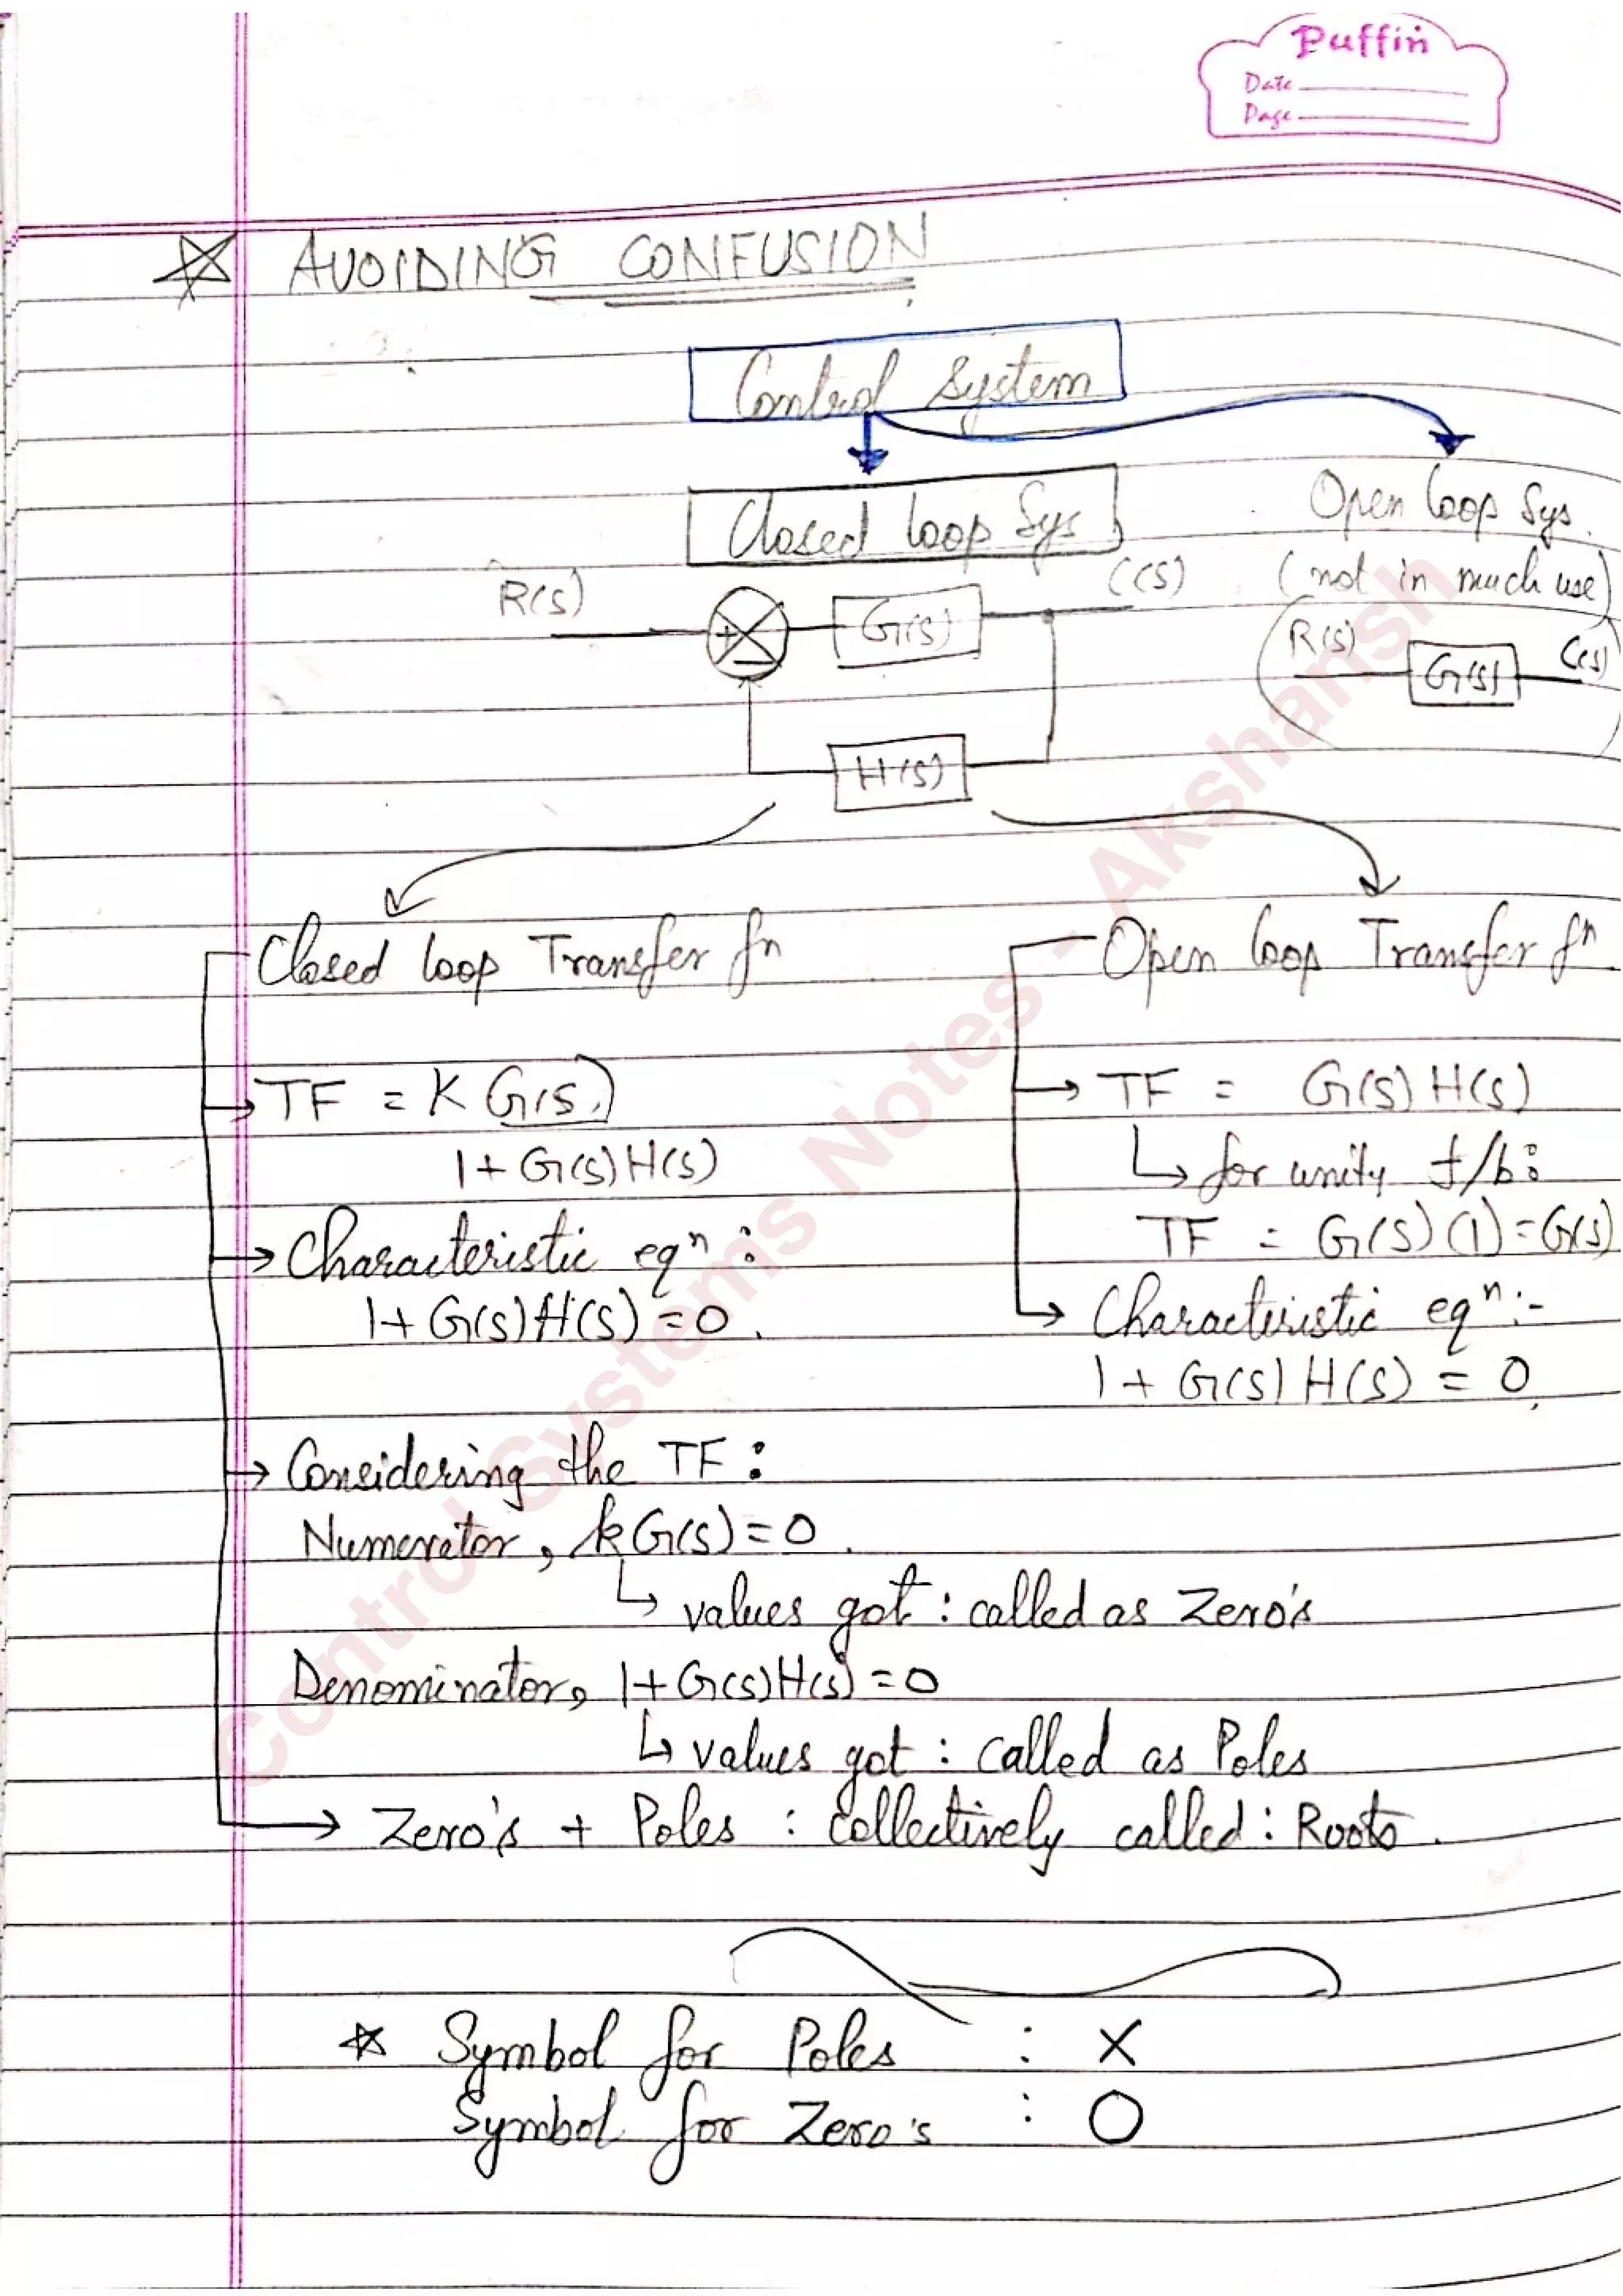 Puffin
Date
Page
☆ AVOIDING CONFUSION
Control System
Closed loop Sys
Open loop Sys.
(not in much use)
R(s)
+
-
G(s)
C(s)
H(s)
R(s)
G(s)
C(s)
Closed loop Transfer fⁿ
→ TF = K G(s)
1+ G(s) H(s)
→ Characteristic eqⁿ :
1+ G(s) H(s) = 0.
→ Considering the TF :
Numerator, kG(s) = 0.
↳ values got : called as Zero's
Denominator, 1+G(s)H(s) = 0
↳ values got : called as Poles
→ Zero's + Poles : collectively called : Roots.
Open loop Transfer fⁿ
→ TF = G(s) H(s)
↳ for unity f/b :
TF = G(s) (1) = G(s)
→ Characteristic eqⁿ :-
1 + G(s) H(s) = 0.
☆ Symbol for Poles : X
Symbol for Zero's : O
Control Systems Notes - Akshansh